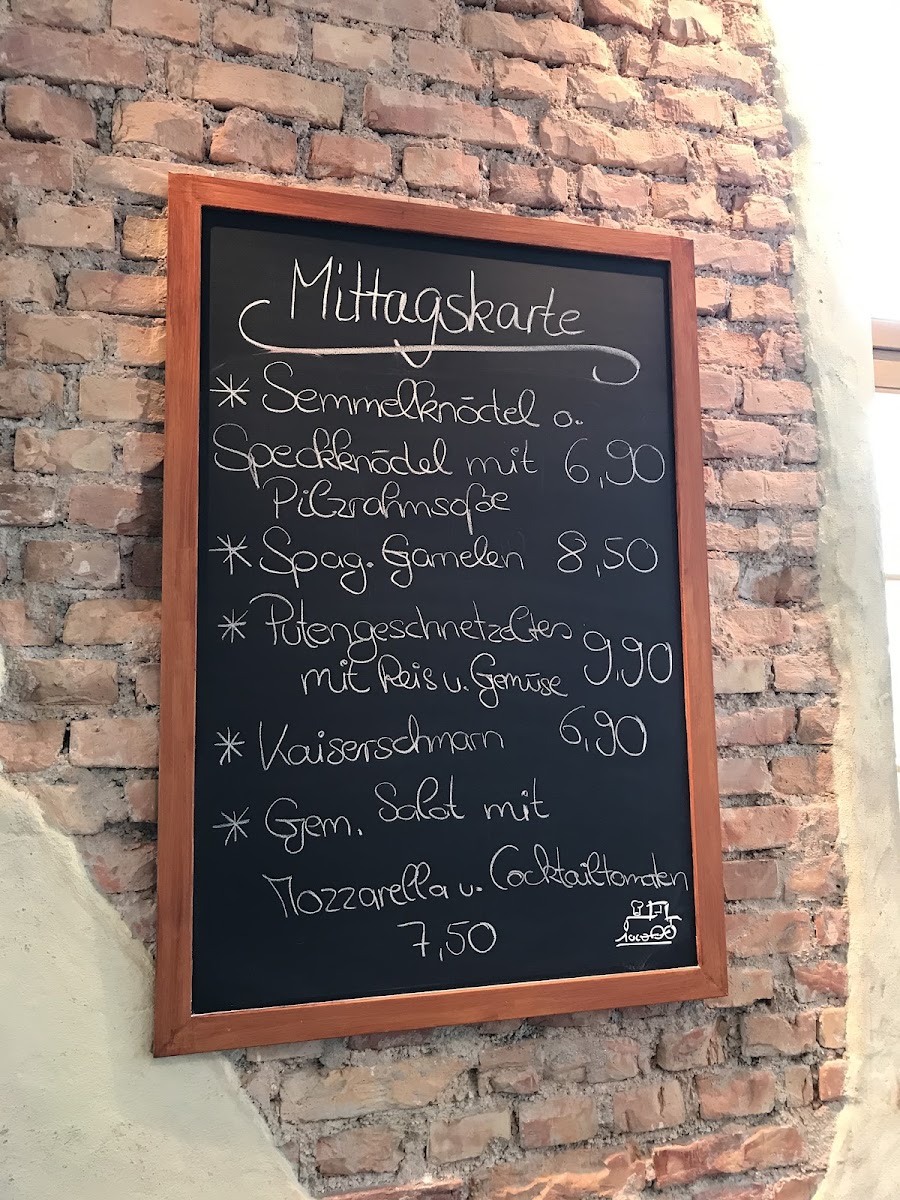 Mittagskarte
* Semmelknödel o.
Speckknödel mit 6,90
Pilzrahmsoße
* Spag. Garnelen 8,50
* Putengeschnetzeltes
mit Reis u. Gemüse 9,90
* Kaiserschmarn 6,90
* Gem. Salat mit
Mozzarella u. Cocktailtomaten
7,50